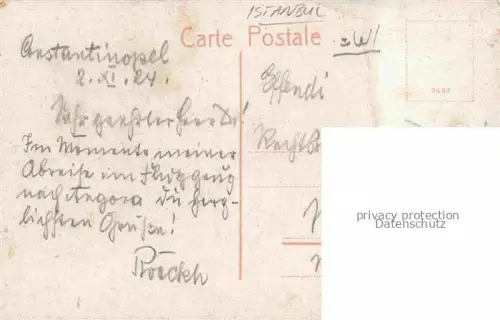 ISTANBUL
Carte Postale
Constantinopel
2. XI. 24.
Sehr geehrter Herr Dr!
Im Momente meiner
Abreise im Flugzeug
nach Angora die herz-
lichsten Grüße!
Effendi
9684
privacy protection
Datenschutz